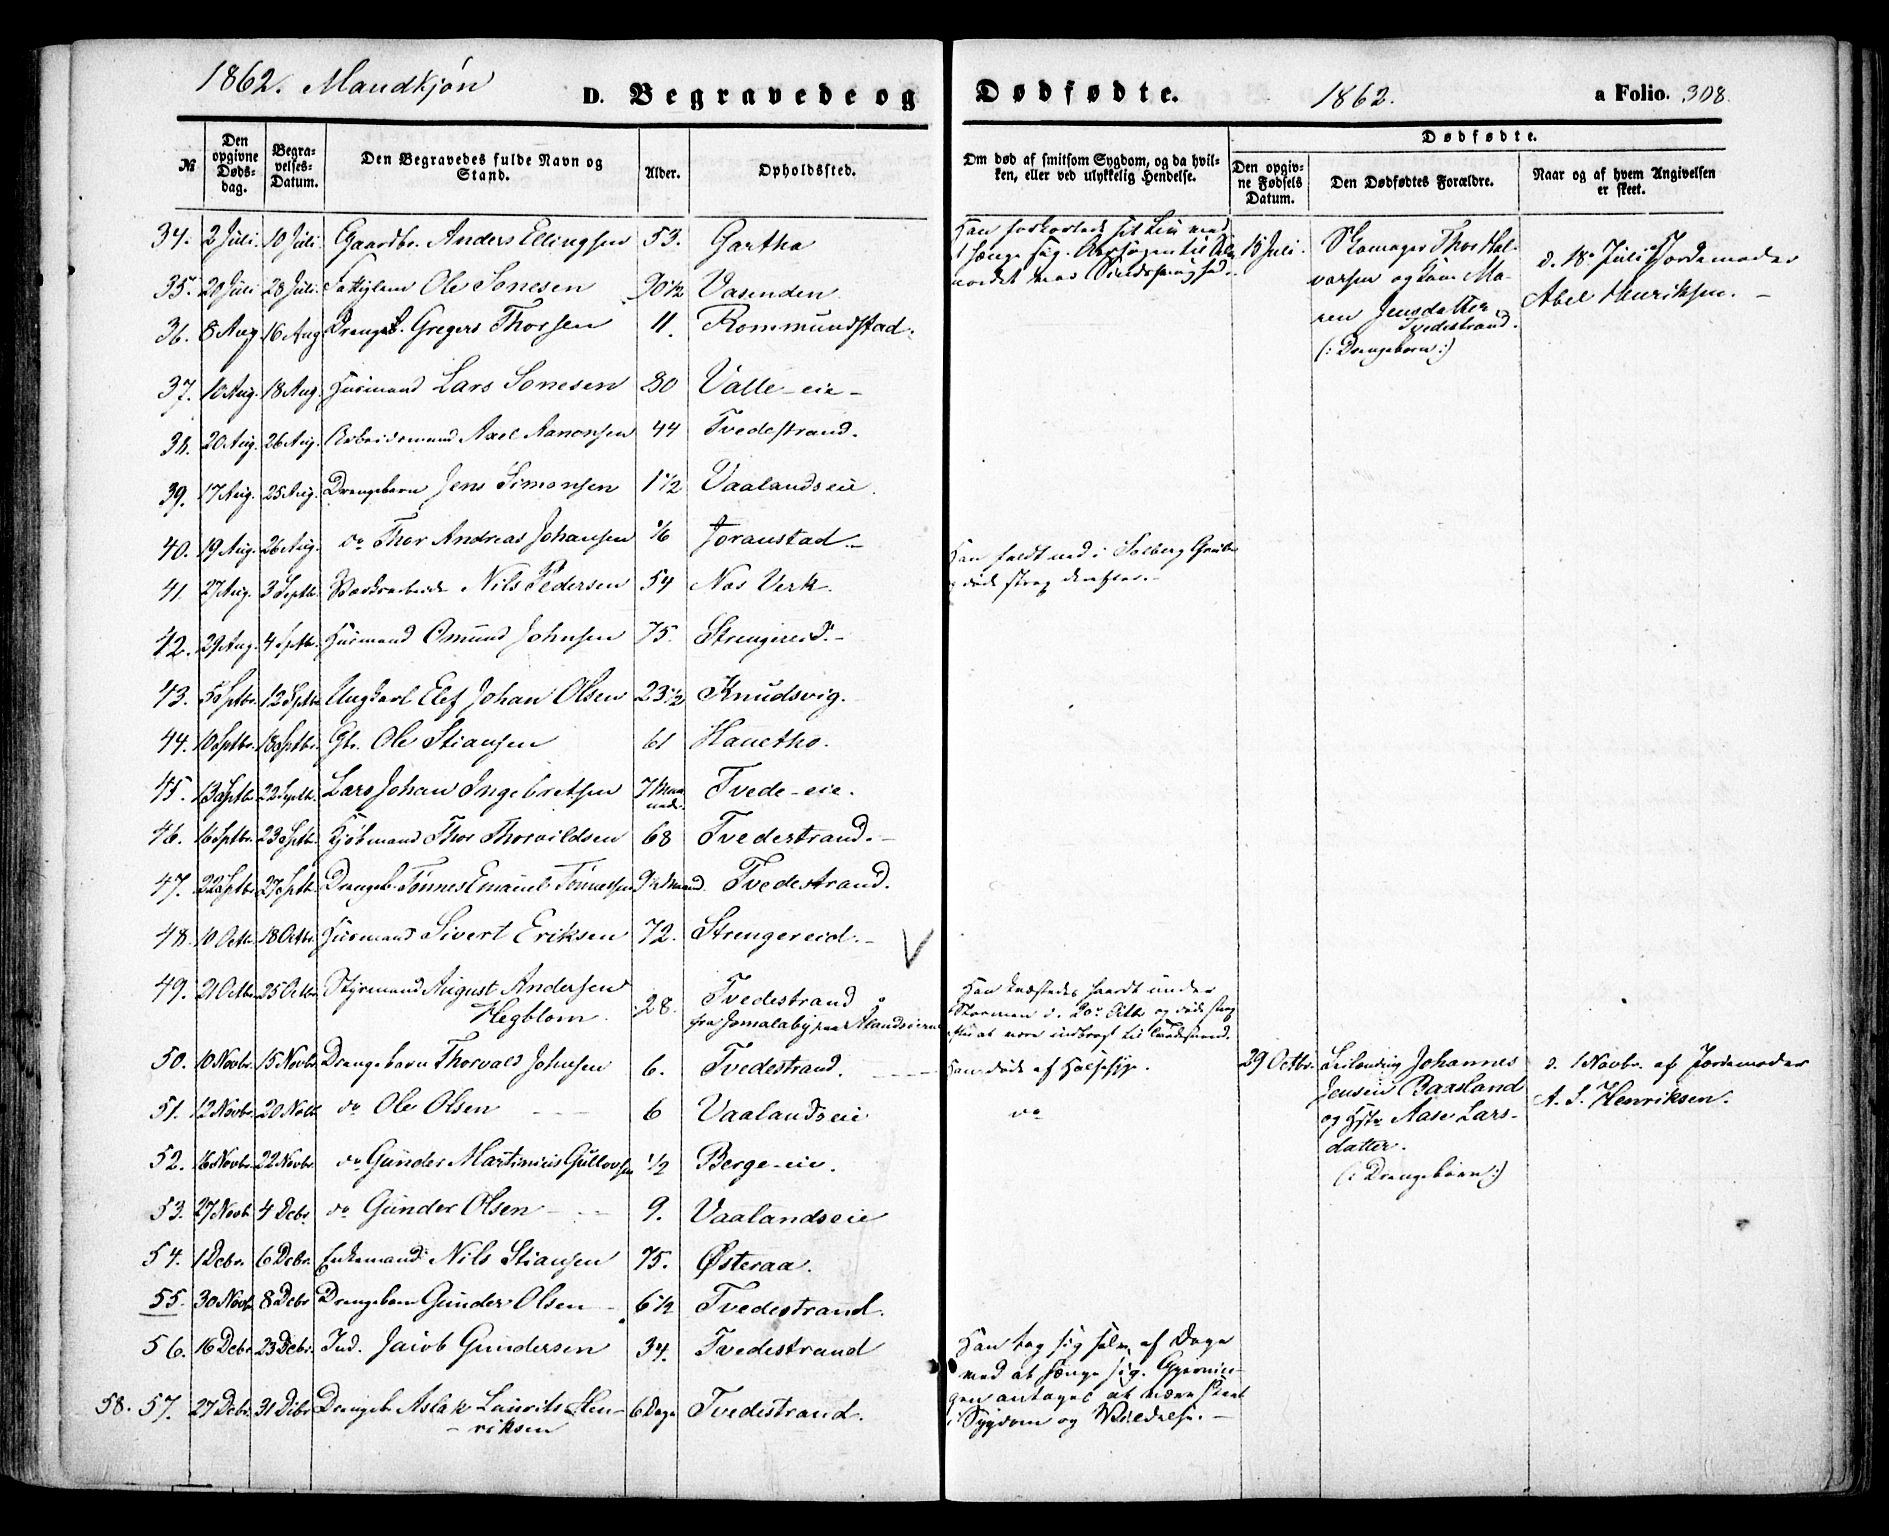 1862. Mandkjøn D. Begravede og Dødfødte. 1862. a Folio. 308.
№ Den opgivne Døds-dag. Begra-velses-Datum. Den Begravedes fulde Navn og Stand. Alder. Opholdssted. Om død af smitsom Sygdom, og da hvil-ken, eller ved ulykkelig Hendelse. Dødfødte. Den opgiv-ne Fødsels Datum. Den Dødfødtes Forældre. Naar og af hvem Angivelsen er skeet.
34. 2 Juli 10 Juli. Gaardbr. Anders Ellingsen 53. Gartha
Han forkortede sit Liv med
at hænge sig.
15 Juli. Skomager Thor Hal-
vorsen og Kone Ma-
ren Jensdatter
Tvedestrand.
(: Drengebarn :)
d. 18. Juli af Jordemoder
Abel Henriksen. -
35. 20 Juli 28 Juli. Fattiglem Ole Sonesen 90 1/2 Vasenden
36. 8 Aug 16 Aug Drengeb. Gregers Thorsen 11. Rommundstad.
37. 10 Aug. 18 Aug. Husmand Lars Sonesen 80 Valle-eie-
38. 20 Aug. 26 Aug. Arbeidsmand Axel Aanonsen 44 Tvedestrand.
39. 17 Aug. 25 Aug. Drengebarn Jens Simonsen 1 1/2 Vaalandseie.
40. 19 Aug. 26 Aug. do Thor Andreas Johansen 1/6 Joranstad.-
41. 27 Aug. 3 Septb. Værksarbeider Nils Pedersen 54 Næs Verk.
Han faldt ned i Solberg Grube
og døde strax derefter.-
42. 29 Aug. 4 Septb. Husmand Omund Johnsen 75. Strengereid.-
43. 5 Septbr. 12 Septbr Ungkarl Elef Johan Olsen 23 1/2 Knudsvig.
44. 10 Septbr. 18 Septbr. Gbr. Ole Stiansen 61 Hanetho.
45. 13 Septbr. 22 Septb. Lars Johan Ingebretsen 7 Maa-
neder. Tvede-eie.
46. 16 Septbr. 23 Septb. Kjøbmand Thor Thorvildsen 68 Tvedestrand.-
47. 22 Septbr. 27 Septb. Drengeb. Tønnes Emanuel Tønnessen 9 1/2 Maaned. Tvedestrand.
48. 10 Octb. 18 Octbr. Husmand Sivert Eriksen 72. Strengereid.- V
49. 21 Octbr. 25 Octbr. Styrmand August Andersen
Hegblom. 28. Tvedestrand
fra Jomalaby paa Ålandsøerne
Han qvæstedes haardt under
Stormen d. 20de Octb. og døde strax
efter at være indbragt til Tvedestrand.
50. 10 Novbr. 15 Novbr. Drengebarn Thorvald Johnsen 6. Tvedestrand.
Han døde af Halssyge.
29 Octbr. Leilending Johannes
Jensen Baasland
og Hstr. Aase Lars-
datter.
(: Drengebarn :)
d. 1 Novbr. af Jordemoder
A. S. Henriksen.
51. 12 Novbr. 20 Novb. do Ole Olsen 6 Vaalandseie do
52. 16 Novbr. 22 Novbr. do Gunder Martinius Gullovsen 1/2 Berge-eie.
53. 27 Novb. 4 Debr. do Gunder Olsen 9. Vaalandseie
54. 1 Debr. 6 Debr. Enkemand Nils Stiansen 75. Østeraa.
55. 30 Novb. 8 Debr Drengebarn Gunder Olsen 6 1/2 Tvedestrand.
56. 16 Debr 23 Debr. Ind. Jacob Gundersen 34. Tvedestrand
Han tog sig selv af Dage
ved at hænge sig. Gjernin-
gen antaget at være skeet
i Sygdom og Vildelse.-
58. 57. 27 Debr. 31 Debr Drengeb Aslak Laurits Hen-
riksen 6 Dage Tvedestrand.